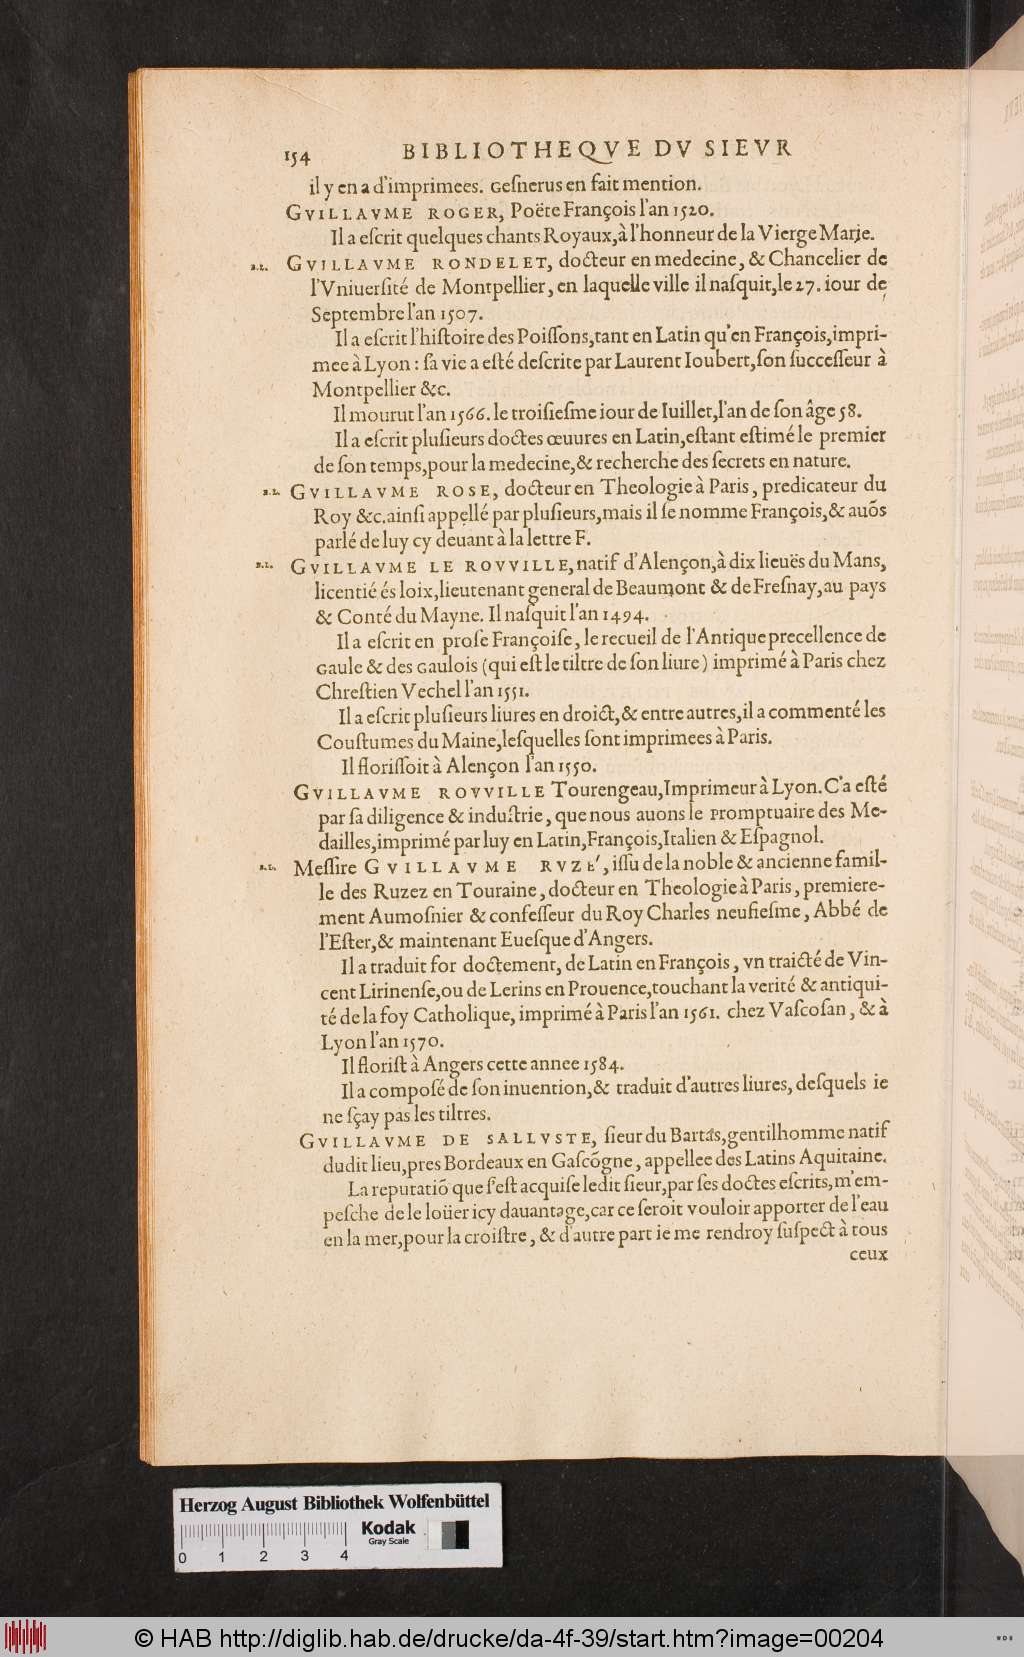 154 BIBLIOTHEQVE DV SIEVR
il y en a d'imprimees. Gesnerus en fait mention.
GVILLAVME ROGER, Poëte François l'an 1520.
Il a escrit quelques chants Royaux, à l'honneur de la Vierge Marie.
GVILLAVME RONDELET, docteur en medecine, & Chancelier de
l'Vniuersité de Montpellier, en laquelle ville il nasquit, le 27. iour de
Septembre l'an 1507.
Il a escrit l'histoire des Poissons, tant en Latin qu'en François, impri-
mee à Lyon : sa vie a esté descrite par Laurent Ioubert, son successeur à
Montpellier &c.
Il mourut l'an 1566. le troisiesme iour de Iuillet, l'an de son âge 58.
Il a escrit plusieurs doctes œuures en Latin, estant estimé le premier
de son temps, pour la medecine, & recherche des secrets en nature.
GVILLAVME ROSE, docteur en Theologie à Paris, predicateur du
Roy &c. ainsi appellé par plusieurs, mais il se nomme François, & auõs
parlé de luy cy deuant à la lettre F.
GVILLAVME LE ROVVILLE, natif d'Alençon, à dix lieuës du Mans,
licentié és loix, lieutenant general de Beaumont & de Fresnay, au pays
& Conté du Mayne. Il nasquit l'an 1494.
Il a escrit en prose Françoise, le recueil de l'Antique precellence de
Gaule & des Gaulois (qui est le tiltre de son liure) imprimé à Paris chez
Chrestien Vechel l'an 1551.
Il a escrit plusieurs liures en droict, & entre autres, il a commenté les
Coustumes du Maine, lesquelles sont imprimees à Paris.
Il florissoit à Alençon l'an 1550.
GVILLAVME ROVVILLE Tourengeau, Imprimeur à Lyon. C'a esté
par sa diligence & industrie, que nous auons le Promptuaire des Me-
dailles, imprimé par luy en Latin, François, Italien & Espagnol.
Messire GVILLAVME RVZÉ, issu de la noble & ancienne famil-
le des Ruzez en Touraine, docteur en Theologie à Paris, premiere-
ment Aumosnier & confesseur du Roy Charles neufiesme, Abbé de
l'Ester, & maintenant Euesque d'Angers.
Il a traduit for doctement, de Latin en François, vn traicté de Vin-
cent Lirinense, ou de Lerins en Prouence, touchant la verité & antiqui-
té de la foy Catholique, imprimé à Paris l'an 1561. chez Vascosan, & à
Lyon l'an 1570.
Il florist à Angers cette annee 1584.
Il a composé de son inuention, & traduit d'autres liures, desquels ie
ne sçay pas les tiltres.
GVILLAVME DE SALLVSTE, sieur du Bartas, gentilhomme natif
dudit lieu, pres Bordeaux en Gascõgne, appellee des Latins Aquitaine.
La reputatiõ que s'est acquise ledit sieur, par ses doctes escrits, m'em-
pesche de le loüer icy dauantage, car ce seroit vouloir apporter de l'eau
en la mer, pour la croistre, & d'autre part ie me rendroy suspect à tous
ceux
Herzog August Bibliothek Wolfenbüttel
Kodak
Gray Scale
0 1 2 3 4
© HAB http://diglib.hab.de/drucke/da-4f-39/start.htm?image=00204